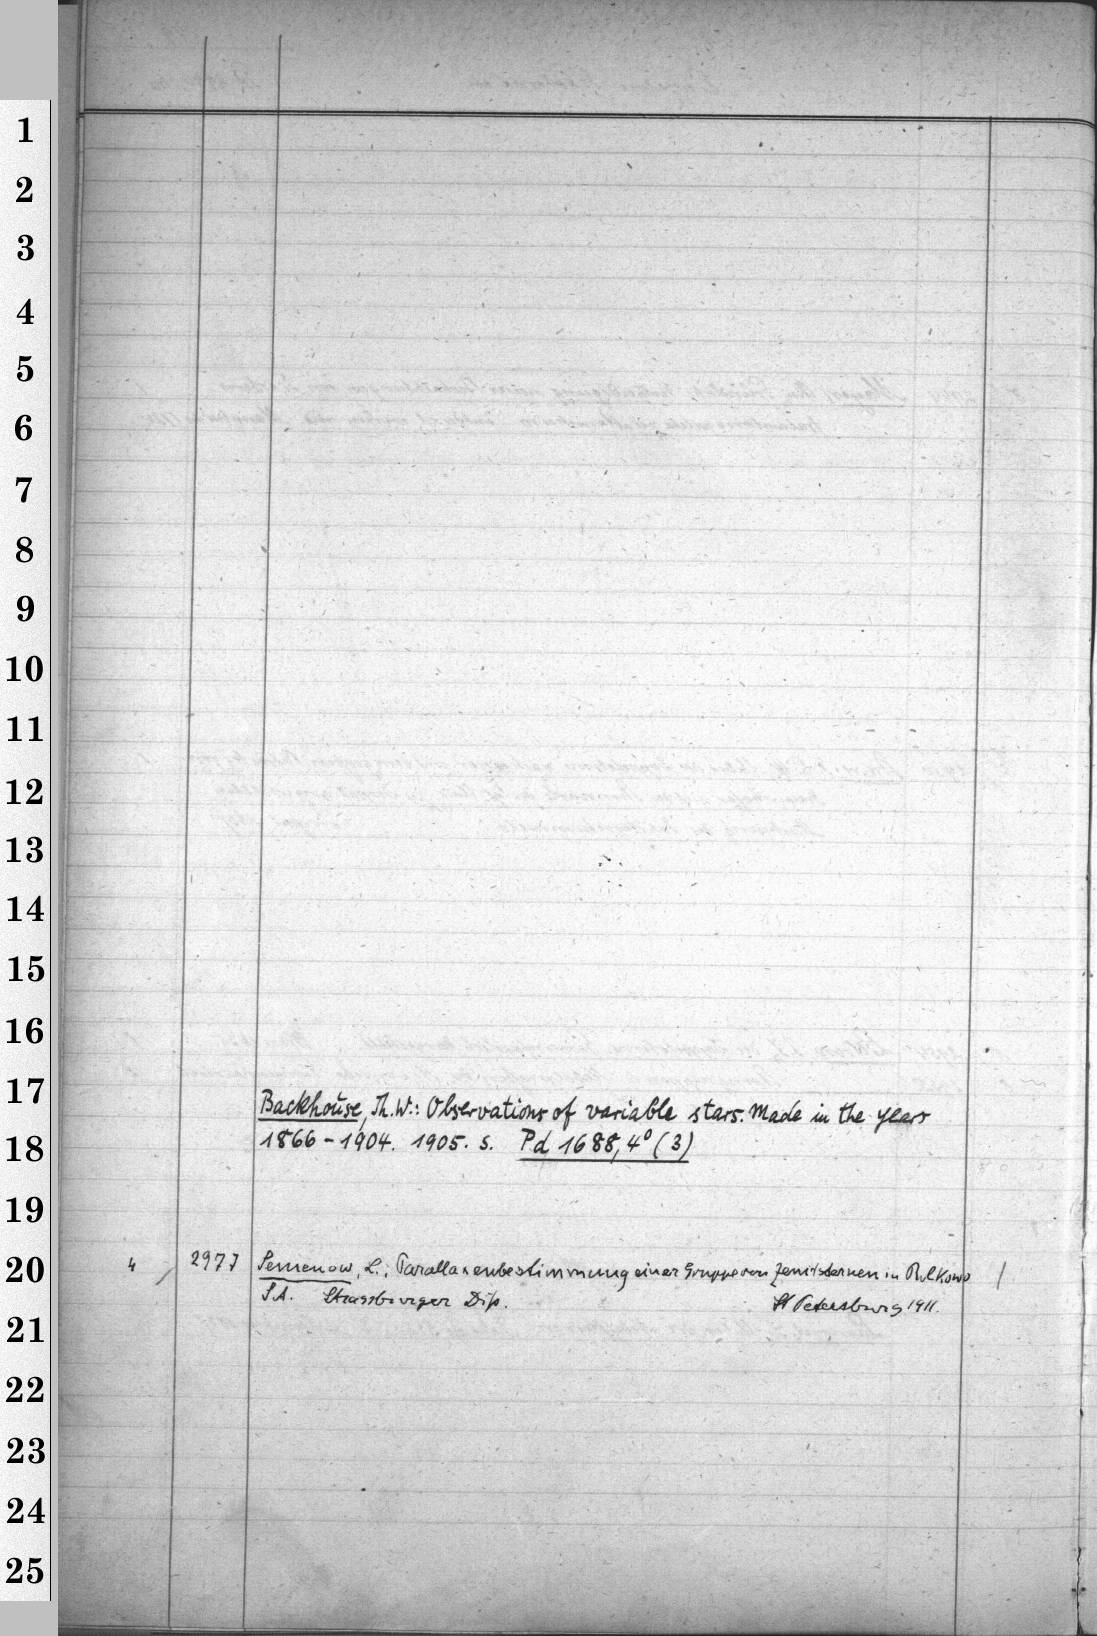 1
2
3
4
5
6
7
8
9
10
11
12
13
14
15
16
17
Backhouse, Th. W.: Observations of variable stars. Made in the years
18
1866-1904. 1905. s. Pd 1688, 4° (3)
19
20
4 2977 Semenow, L.: Parallaxenbestimmung einer Gruppe von Zenitsternen in Pulkowo 1
S.A. Strassburger Diss. St Petersburg 1911.
21
22
23
24
25